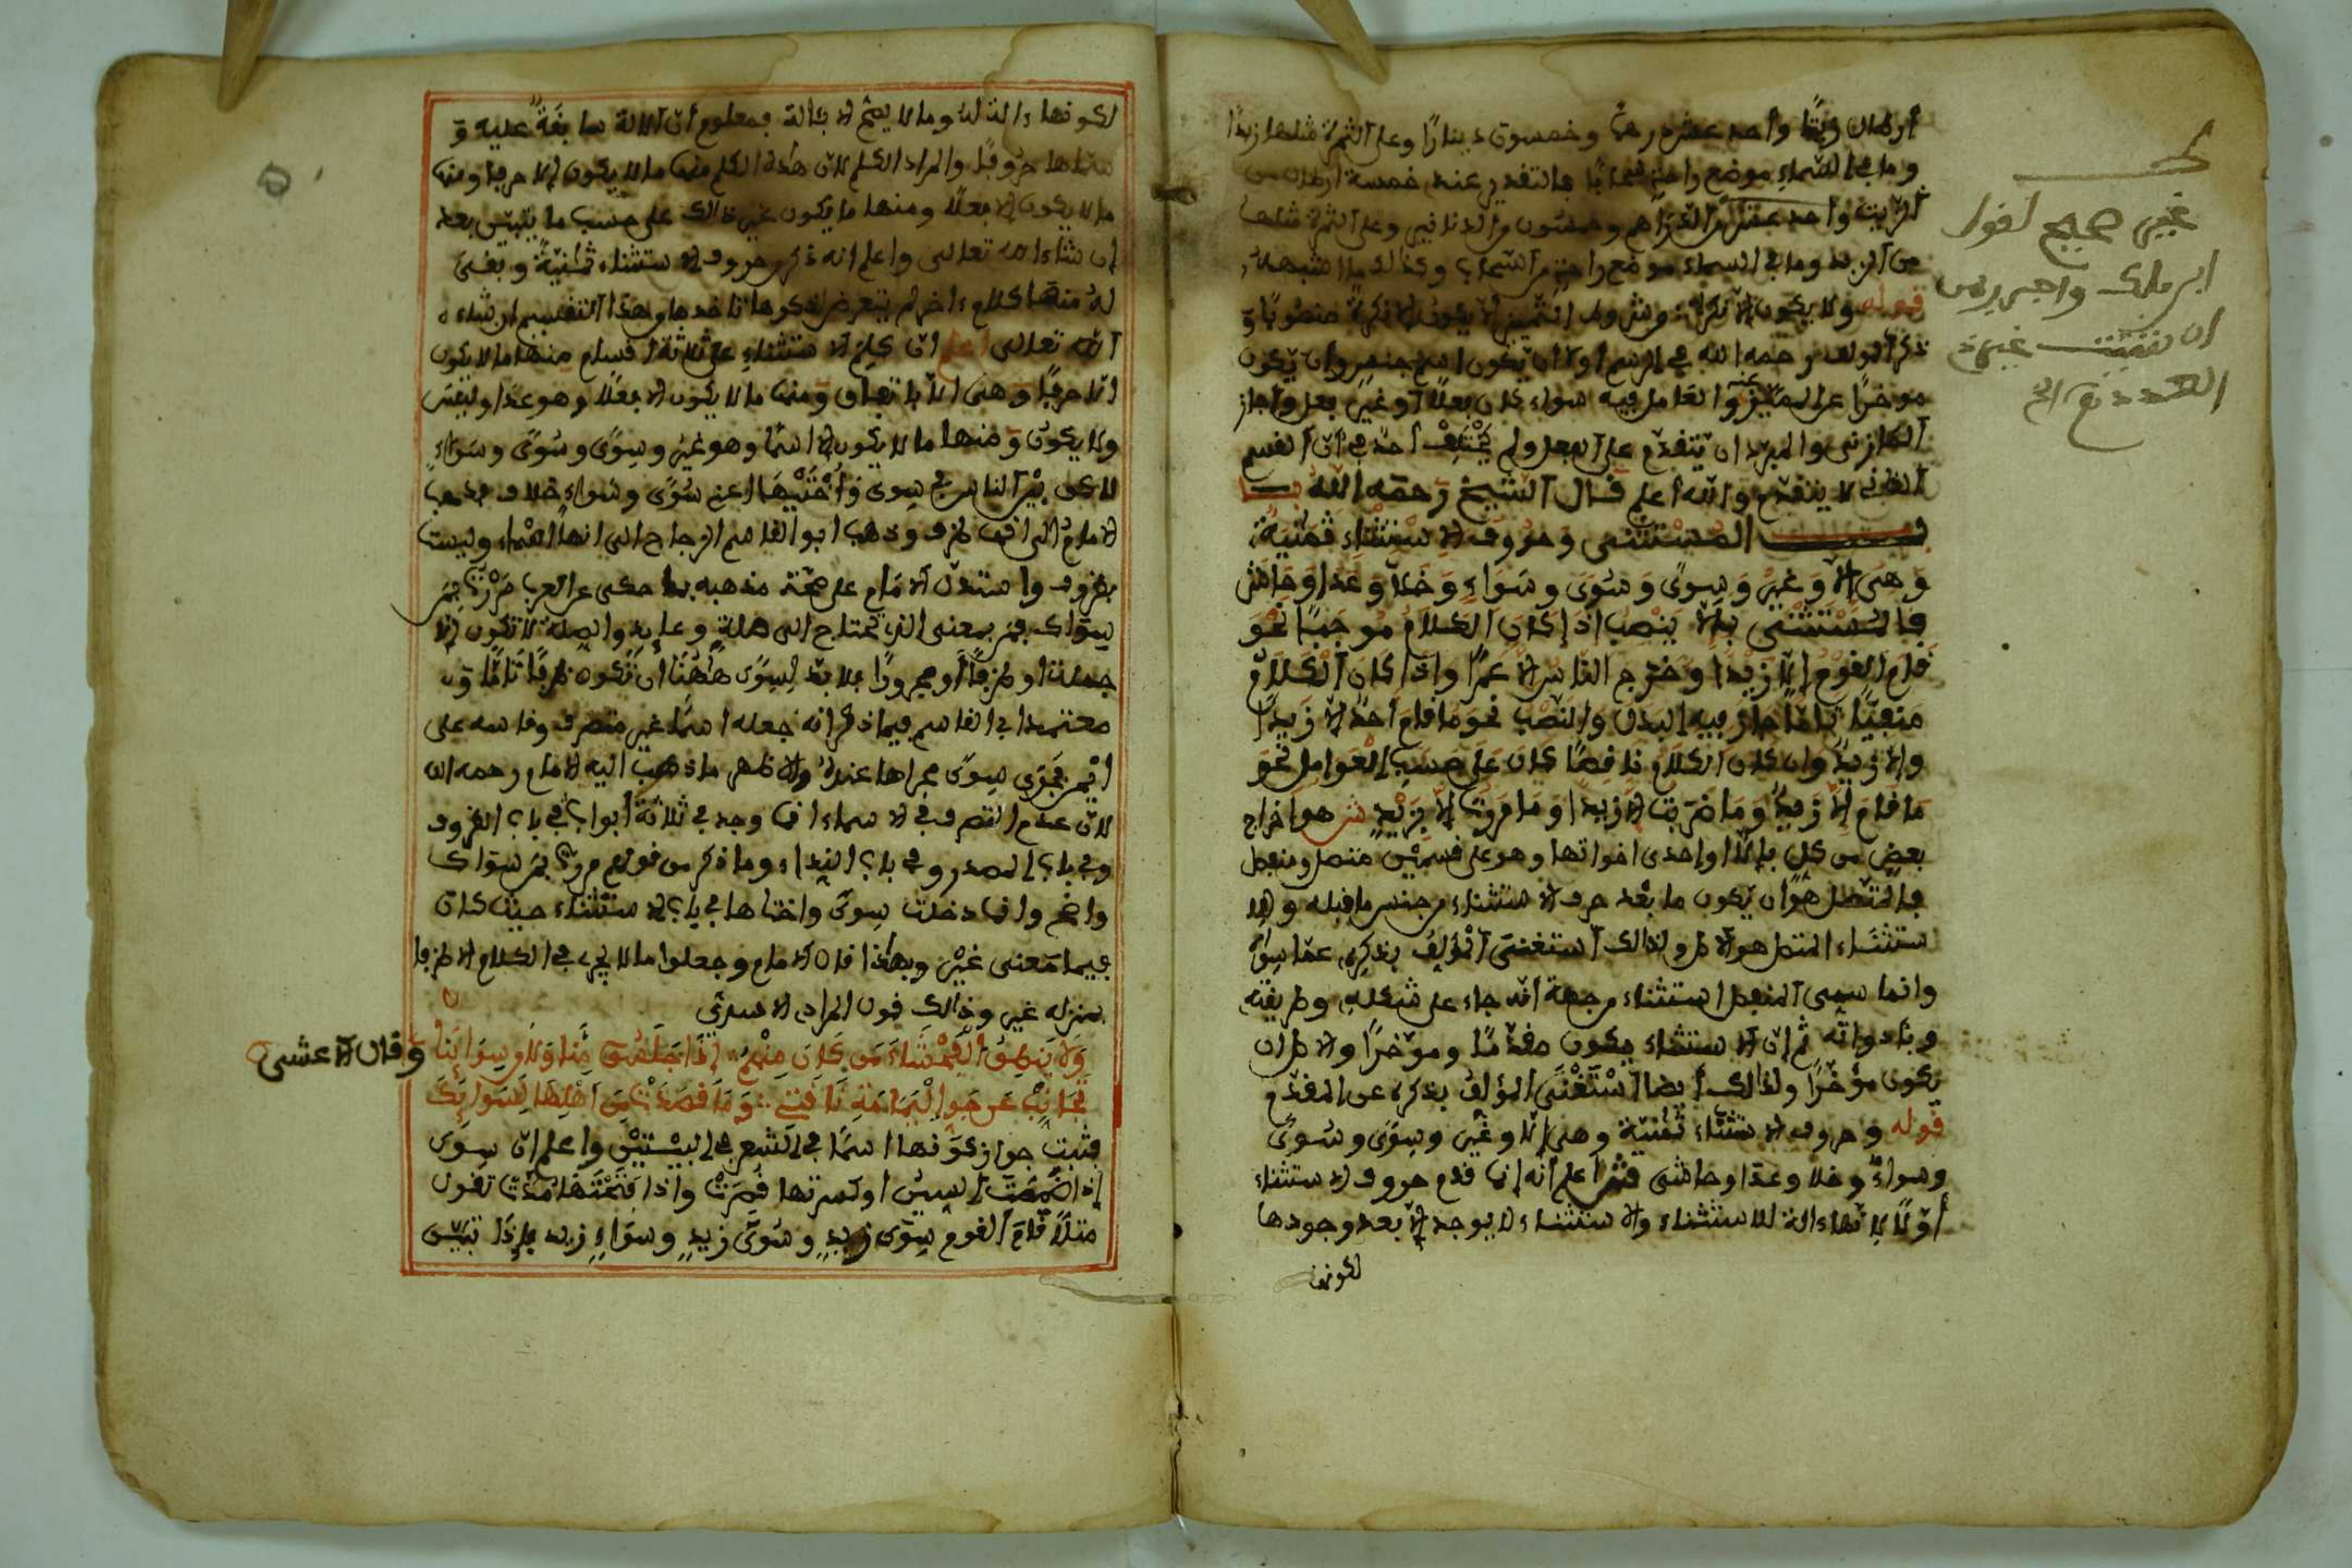 أرطال زيتا وأحد عشر درهما وخمسون دينارا وعلى الثمرة مثلها زبدا
وما في السماء موضع راحة سحابا فالتقدير عنده خمسة أرطال من
الزيت وأحد عشر من الدراهم وخمسون من الدنانير وعلى الثمرة مثلها
من الزبد وما في السماء موضع راحة من السحاب وكذلك ما اشبهه
قوله ولا يكون الا نكرة وشروط التمييز لا يكون الا نكرة منصوبا و
ذكر المولف رحمه الله في الرسم اولا ان يكون اسم جنس وان يكون
موخرا عن المميز والعامل فيه سواء كان فعلا أو غير فعل وأجاز
المازني والمبرد ان يتقدم على الفعل ولم يختلف احد في أن القسم
الثاني لا يتقدم والله أعلم قال الشيخ رحمه الله بـــا
ب المستثنى وحروف الاستثناء ثمنية
وهي الا وغير وسوى وسوى وسواء وخلا وعدا وحاشى
فالمستثنى بالا ينصب اذا كان الكلام موجبا نحو
قام القوم إلا زيدا وخرج الناس الا عمرا واذا كان الكلام
منفيا تاما جاز فيه البدل والنصب نحو ما قام أحد الا زيدا
والا زيد وان كان الكلام ناقصا كان على حسب العوامل نحو
ما قام الا زيد وما ضربت الا زيدا وما مررت الا بزيد ش هو اخراج
بعض من كل بإلا او احدى اخواتها وهو على قسمين متصل ومنفصل
فالمتصل هو ان يكون ما بعد حرف الاستثناء من جنس ما قبله وهذا
الاستثناء المتصل هو الاصل ولذالك استغنى المؤلف بذكره عما سواه
وانما سمى المنفصل استثناء من جهة انه جاء على شكله وطريقته
وبأدواته ثم إن الاستثناء يكون مقدما وموخرا والاصل ان
يكون مؤخرا ولذالك أيضا استغنى المؤلف بذكره عن المقدم
قوله وحروف الاستثناء ثمنية وهي إلا وغير وسوى وسوى
وسواء وخلا وعدا وحاشى فش اعلم أنه إنما قدم حروف الاستثناء
أولا لانها ءالة للاستثناء والاستثناء لا يوجد الا بعد وجودها
لكونها
غير صحيح لقول
ابن مالك واجررن
ان شئت غير ذي
العدد الخ
لكونها ءالة له وما لا يصح الا بئالة فمعلوم أن الالة سابقة عليه و
سماها حروفا والمراد الكلم لان هذه الكلم منها ما لا يكون إلا حرفا ومنها
ما لا يكون الا فعلا ومنها ما يكون غير ذالك على حسب ما يتبين بعد
إن شاء الله تعالى واعلم انه ذكر حروف الاستثناء ثمنية وبقى
له منها كلام ءاخر لم يتعرض لذكرها
الله تعالى اعلم ان كلم الاستثناء على ثلاثة اقسام منها ما لا يكون
الا حرفا وهى الا باتفاق ومنها ما لا يكون الا فعلا وهو عدا وليس
ولا يكون ومنها ما لا يكون الا اسما وهو غير وسوى وسوى وسواء
لاكن بين الناس في سوى وأختيها اعني سوى وسواء خلاف فذهب
الامام الى انها ظرف وذهب ابو القاسم الزجاج الى انها أسماء وليست
بظروف واستدل الامام على صحة مذهبه بما حكى عن العرب مررت بمن
سواك فمن بمعنى الذي تحتاج الى صلة وعايد والصلة لا تكون إلا
جملة او ظرفا أو مجرورا فلا بد لسوى هاهنا أن تكون ظرفا تاما و
معتمد ابي القاسم فيما ذكر انه جعله اسما غير متصرف وقاسه على
ايمن فجرى سوى مجراها عنده والاظهر ما ذهب اليه الامام رحمه الله
لان عدم التصرف في الاسماء انما وجد في ثلاثة أبواب في باب الظروف
وفي باب المصدر وفي باب النداء وما ذكر من قولهم مررت بمن سواك
واضح وانما دخلت سوى واختاها في باب الاستثناء حيث كان
فيهما معنى غير وبهذا قال الامام وجعلوا ما لا يجري في الكلام الا ظرفا
بمنزله غير وذالك قول المرار الاسدي
ولا ينطق الفحشاء من كان منهم إذا جلسوا منا ولا من سوائنا
وقال الاعشى
تجانب عن جو اليمامة ناقتي وما قصدت من اهلها لسوائك
فثبت جواز كونها اسما في الشعر في البيتين واعلم ان سوى
إذا ضممت السين او كسرتها قصرت واذا فتحتها مدت تقول
مثلا قام القوم سوى زيد وسوى زيد وسواء زيد فإذا تبين